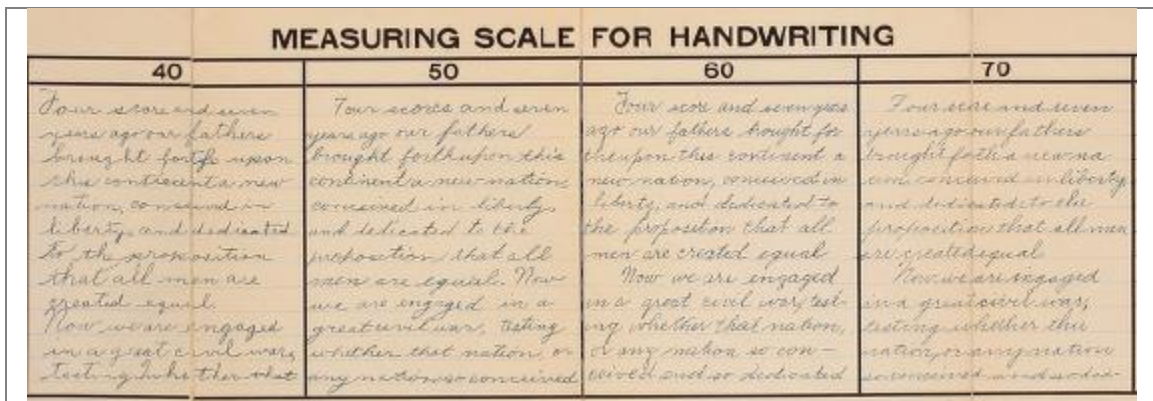 MEASURING SCALE FOR HANDWRITING
40
Four score and seven
years ago our fathers
brought forth upon
this continent a new
nation, conceived in
liberty, and dedicated
to the proposition
that all men are
created equal.
Now we are engaged
in a great civil war,
testing whether that
50
Four scores and seven
years ago our fathers
brought forth upon this
continent a new nation,
conceived in liberty,
and dedicated to the
proposition that all
men are equal. Now
we are engaged in a
great civil war, testing
whether that nation or
any nation so conceived
60
Four score and seven years
ago our fathers brought for
th upon this continent a
new nation, conceived in
liberty, and dedicated to
the proposition that all
men are created equal
Now we are engaged
in a great civil war, test-
ing whether that nation,
or any nation so con-
ceived and so dedicated
70
Four score and seven
years ago our fathers
brought forth a new na
tion conceived in liberty,
and dedicated to the
proposition that all men
are created equal
Now we are engaged
in a great civil war,
testing whether this
nation, or any nation
so conceived and so ded-